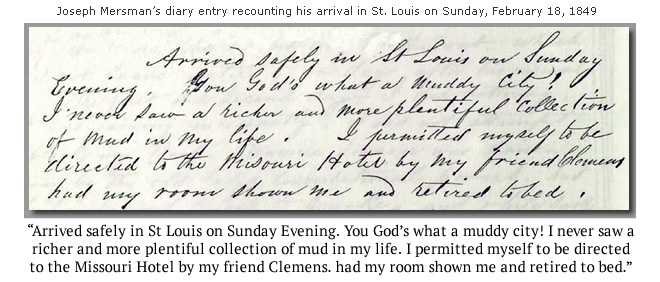 Joseph Mersman's diary entry recounting his arrival in St. Louis on Sunday, February 18, 1849
Arrived safely in St Louis on Sunday
Evening. You God's what a muddy City!
I never saw a richer and more plentiful Collection
of mud in my life. I permitted myself to be
directed to the Misouri Hotel by my friend Clemens
had my room shown me and retired to bed.
“Arrived safely in St Louis on Sunday Evening. You God's what a muddy city! I never saw a
richer and more plentiful collection of mud in my life. I permitted myself to be directed
to the Missouri Hotel by my friend Clemens. had my room shown me and retired to bed.”